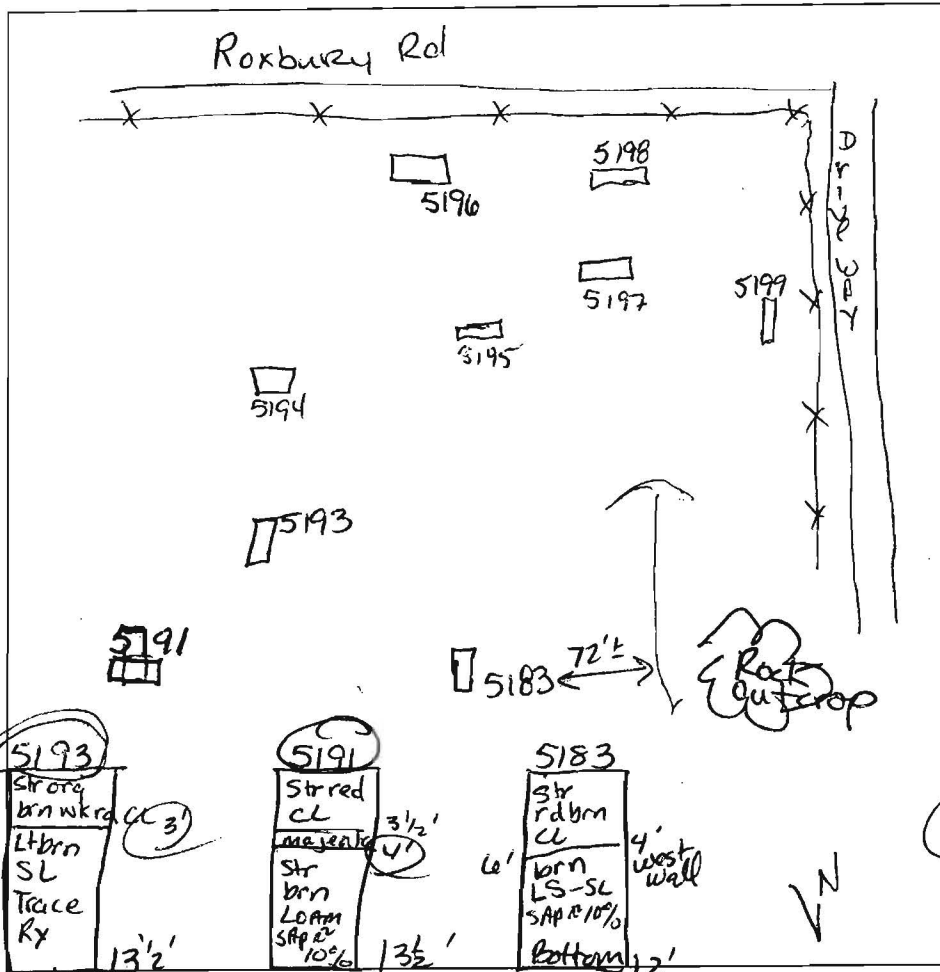 Roxbury Rd
Driveway
5198
5196
5197
5199
5195
5194
5193
5191
5183
72'±
Rock
Outcrop
5193
Str org
brn wk rd CL
3'
Lt brn
SL
Trace
Rx
13 1/2'
5191
Str red
CL
3 1/2'
4'
Str
brn
LOAM
SAp ≈
10%
13 1/2'
5183
Str
rdbrn
CL
4'
west
wall
6'
brn
LS-SL
SAp ≈ 10%
Bottom
N